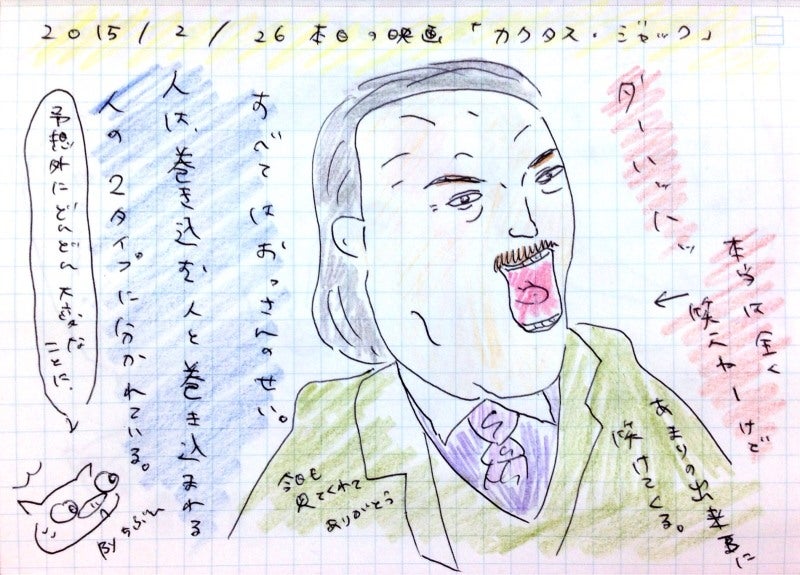 2015/2/26 本日の映画「カクタス・ジャック」
ダーハッハッ
本当は全く
笑えねーけど
あまりの出来事に
笑けてくる。
すべてはおっさんのせい。
人は、巻き込む人と巻き込まれる
人の2タイプに分かれている。
予想外にどんどん大変な
ことに。
今日も
見てくれて
ありがとう
BY ちぶ～